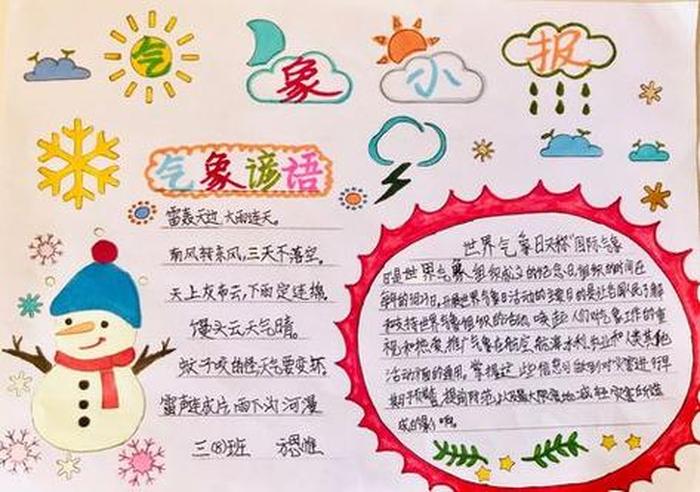 气象小报
气象谚语
雷轰天边，大雨连天。
南风转东风，三天不落空。
天上灰布云，下雨定连绵。
馒头云天气晴。
蚊子咬的怪，天气要变坏。
雷声连成片，雨下沟河漫
三(8)班
世界气象日又称"国际气象
日是世界气象组织成立的纪念日，组织的时间在
每年的3月23日，开展世界气象日活动的主要目的是让各国人民了解
和支持世界气象组织的活动，唤起人们对气象工作的重
视和热爱，推广气象在航空，航海水利，农业和人类其他
活动方面的应用。掌握这些信息可做到对灾害进行早
期预警，提前防范，以最大限度地减轻灾害所造
成的影响。